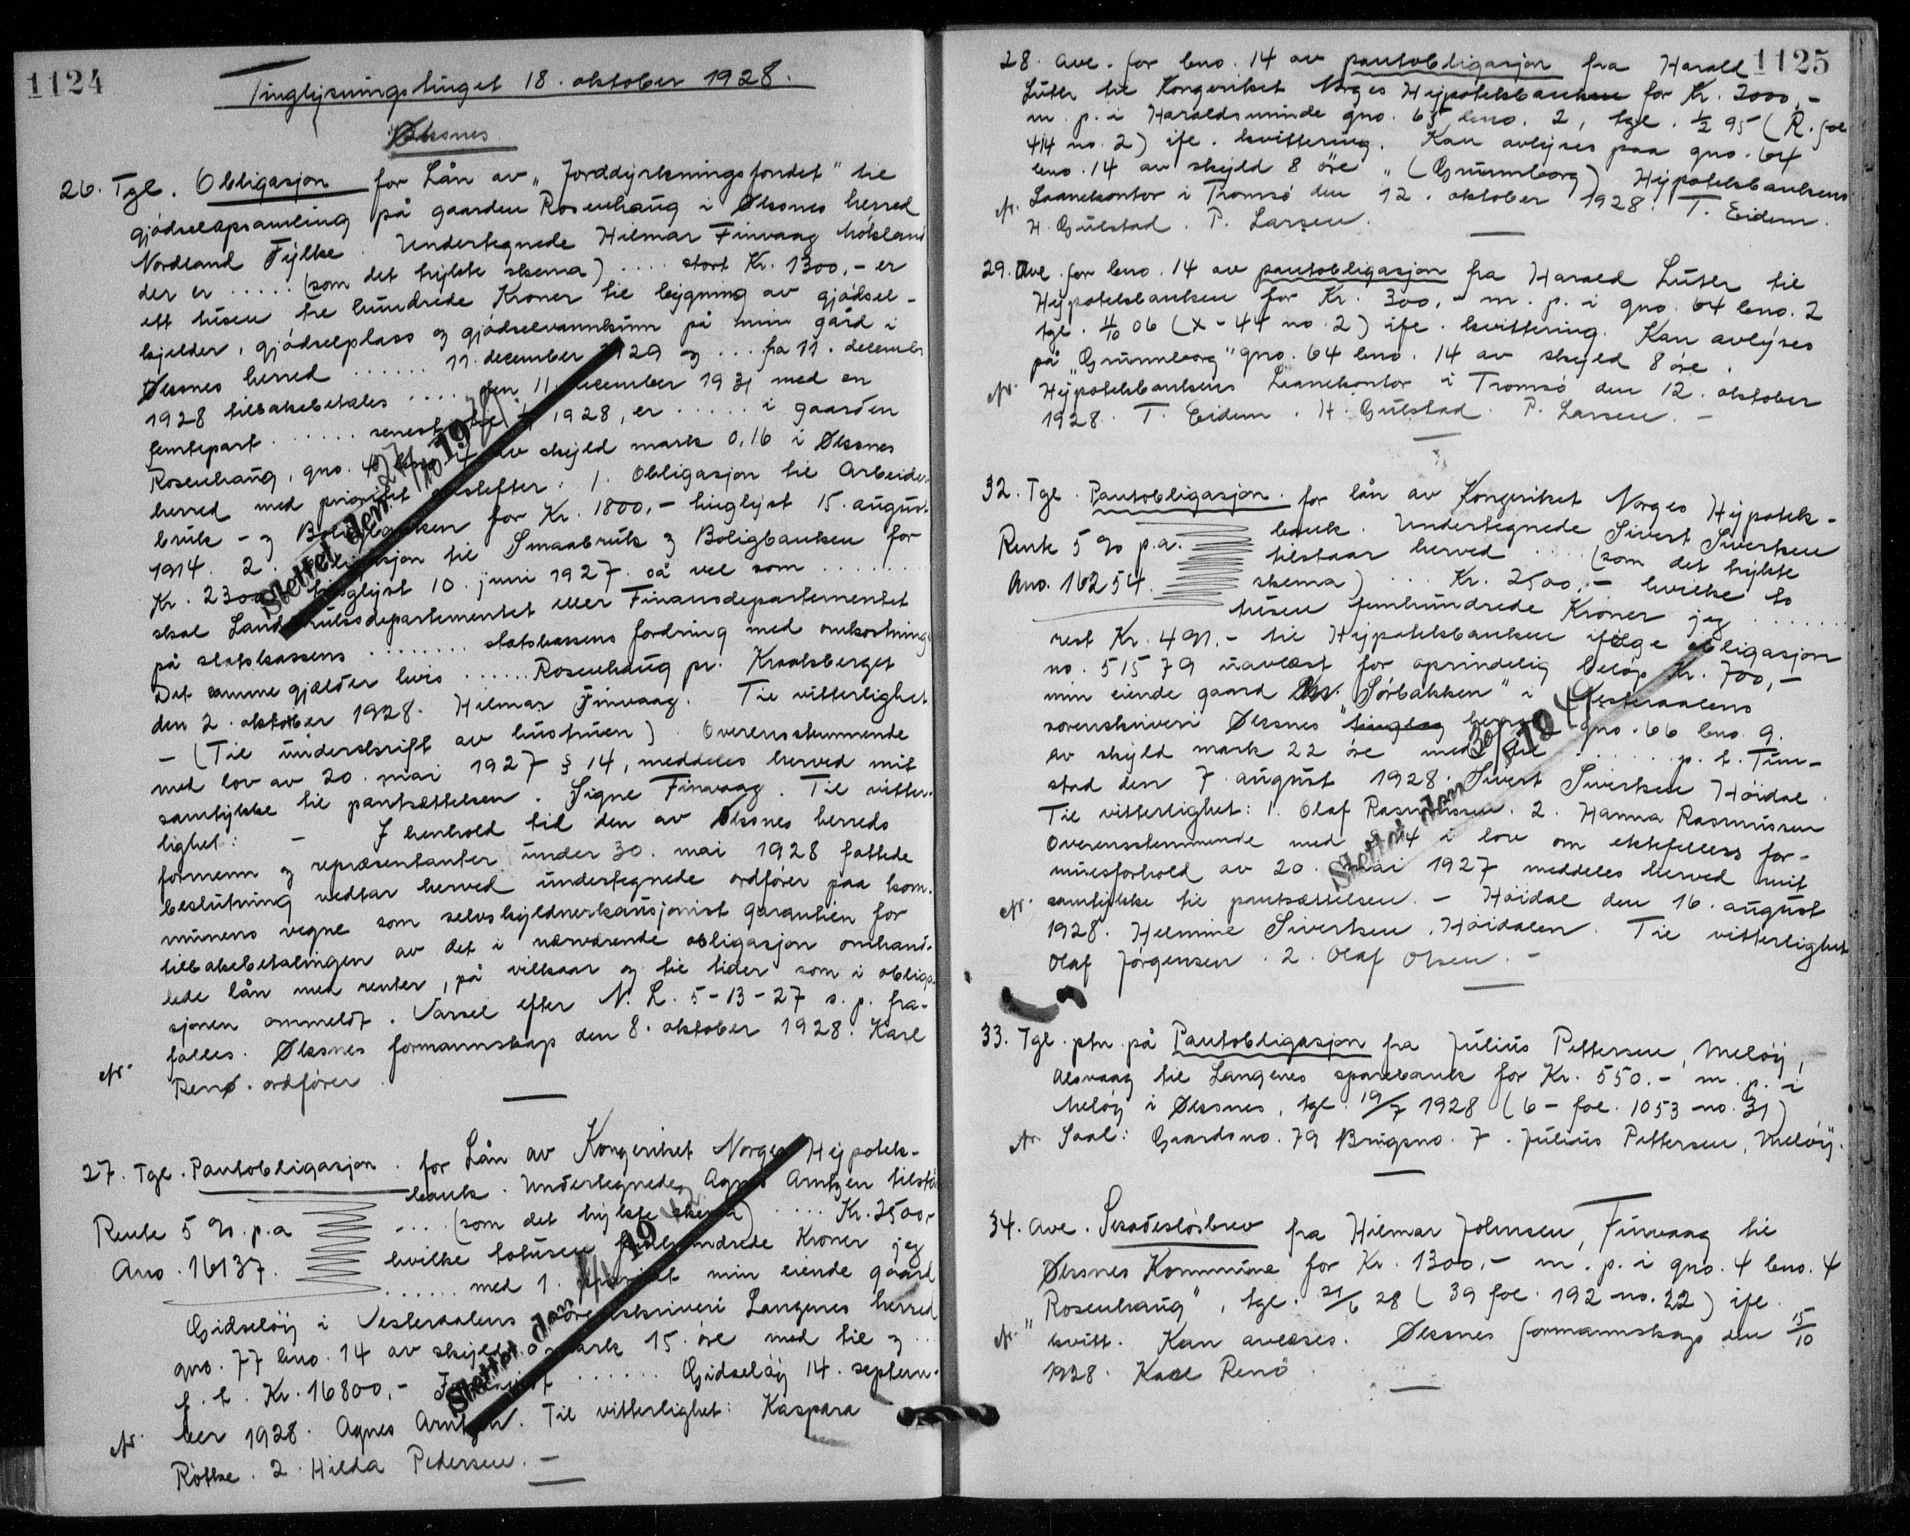 1124
Tinglysningstinget 18. oktober 1928.
Øksnes
26. Tgl. Obligasjon for Lån av „Jorddyrkningsfondet" til
gjødselopsamling på gaarden Rosenhaug i Øksnes herred
Nordland Fylke. Undertegnede Hilmar Finvaag
der er ..... (som det trykte skema) .... stort Kr. 1300,- er
ett tusen tre hundrede Kroner til bygning av gjødsel-
kjelder, gjødselplass og gjødselvannkum på min gård i
Øksnes herred ...... 11. december 1929 og ... fra 11. december
1928 tilbakebetales .... den 11. december 1931 med en
femtepart ...... senest 1928, er ..... i gaarden
Rosenhaug, gno. 4 bno. 4 av skyld mark 0,16 i Øksnes
herred med prioritet nestefter: 1. Obligasjon til Arbeider-
bruk - og Boligbanken for Kr. 1800,- tinglyst 15. august
1914. 2. Obligasjon til Smaabruk og Boligbanken for
Kr. 2300 tinglyst 10. juni 1927. så vel som ........
skal Landbruksdepartementet eller Finansdepartementet
på statskassens ........ statskassens fordring med omkostning
Det samme gjælder hvis ...... Rosenhaug pr. Kraaksberget
den 2. oktober 1928. Hilmar Finvaag. Til vitterlighet
- (Til underskrift av hustruen). Overensstemmende
med lov av 20. mai 1927 § 14, meddeles herved mit
samtykke til pantsættelsen. Signe Finvaag. Til vitter-
lighet: - I henhold til den av Øksnes herreds
formenn og repræsentanter under 30. mai 1928 fattede
beslutning vedtar herved undertegnede ordfører paa kom-
munens vegne som selvskyldnerkausjonist garantien for
tilbakebetalingen av det i nærværende obligasjon omhand-
lede lån med renter, på vilkaar og til tider som i obliga-
sjonen ommeldt. Varsel efter N. L. 5-13-27 s. p. fra-
falles. Øksnes formannskap den 8. oktober 1928. Karl
Renø. ordfører.
Slettet den 27/10 19
27. Tgl. Pantobligasjon for Lån av Kongeriket Norges Hypotek-
bank. Undertegnede Agnes Arntzen tilstår
Rente 5 % p.a .... (som det trykte skema) .... Kr. 2500,-
Ano. 16137. hvilke totusen femhundrede Kroner jeg
...... med 1. prioritet min eiende gaard
Gidseløy i Vesteraalens sorenskriveri Langenes herred
gno. 77 bno. 14 av skyld mark 15 øre med til og ..
f. t. Kr. 16800,- ...... Gidseløy 14. septem-
ber 1928. Agnes Arntzen. Til vitterlighet: Kaspara
Røtke. 2. Hilda Pedersen. -
Slettet den 19
1125
28. Avl. for bno. 14 av pantobligasjon fra Harald
Luth til Kongeriket Norges Hypotekbanken for Kr. 2000,-
m. p. i Haraldsminde gno. 65 bno. 2, tgl. 1/2 95 (R. fol
414 no. 2) ifl. kvittering. Kan avlyses paa gno. 64
bno. 14 av skyld 8 øre „(Grunnborg) Hypotekbankens
Laanekontor i Tromsø den 12. oktober 1928. T. Eidem.
H. Gulstad. P. Larsen.
29. Avl. for bno. 14 av pantobligasjon fra Harald Luth til
Hypotekbanken for Kr. 300,- m. p. i gno. 64 bno. 2
tgl. 4/10 06 (X - 44 no. 2) ifl. kvittering. Kan avlyses
på „Grunnborg" gno. 64 bno. 14 av skyld 8 øre.
Hypotekbankens Laanekontor i Tromsø den 12. oktober
1928. T. Eidem. H. Gulstad. P. Larsen. -
32. Tgl. Pantobligasjon for lån av Kongeriket Norges Hypotek-
bank. Undertegnede Sivert Sivertsen
Rente 5 % p.a. tilstaar herved .... (som det trykte
Ano. 16254. skema) ... Kr. 2500,- hvilke to
tusen femhundrede Kroner jeg .......
rest Kr. 491.- til Hypotekbanken ifølge obligasjon
no. 51579 uavlæst for oprindelig beløp Kr. 700,-
min eiende gaard „Sørbakken" i Vesteraalens
sorenskriveri Øksnes herred gno. 66 bno. 9.
av skyld mark 22 øre med til ...... p. t. Tun-
stad den 7. august 1928. Sivert Sivertsen Høidal.
Til vitterlighet: 1. Olaf Rasmussen. 2. Hanna Rasmussen
Overensstemmende med § 14 i lov om ektefellers for-
muesforhold av 20. mai 1927 meddeles herved mit
samtykke til pantsættelsen. - Høidal den 16. august
1928. Helmine Sivertsen, Høidalen. Til vitterlighet
Olaf Jørgensen. 2. Olaf Olsen. -
Slettet den 30/ 19
33. Tgl. ptn. på Pantobligasjon fra Julius Pettersen, Meløy,
Alsvaag til Langenes sparebank for Kr. 550.- m. p. i
Meløy i Øksnes, tgl. 19/7 1928 (6 - fol. 1053 - no. 31)
Saal: Gaardsno. 79 Brugsno. 7. Julius Pettersen, Meløy.
34. Avl. Skadesløsbrev fra Hilmar Johnsen, Finvaag til
Øksnes Kommune for Kr. 1300,- m. p. i gno. 4 bno. 4
„Rosenhaug", tgl. 21/6 28 (39 fol. 192 no. 22) ifl.
kvitt. Kan avlæses. Øksnes formannskap den 15/10
1928. Karl Renø